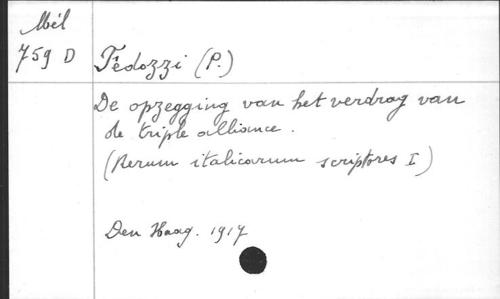 Mél
759 D
Fèdozzi (P.)
De opzegging van het verdrag van
de triple alliance.
(Rerum italicarum scriptores I)
Den Haag. 1917